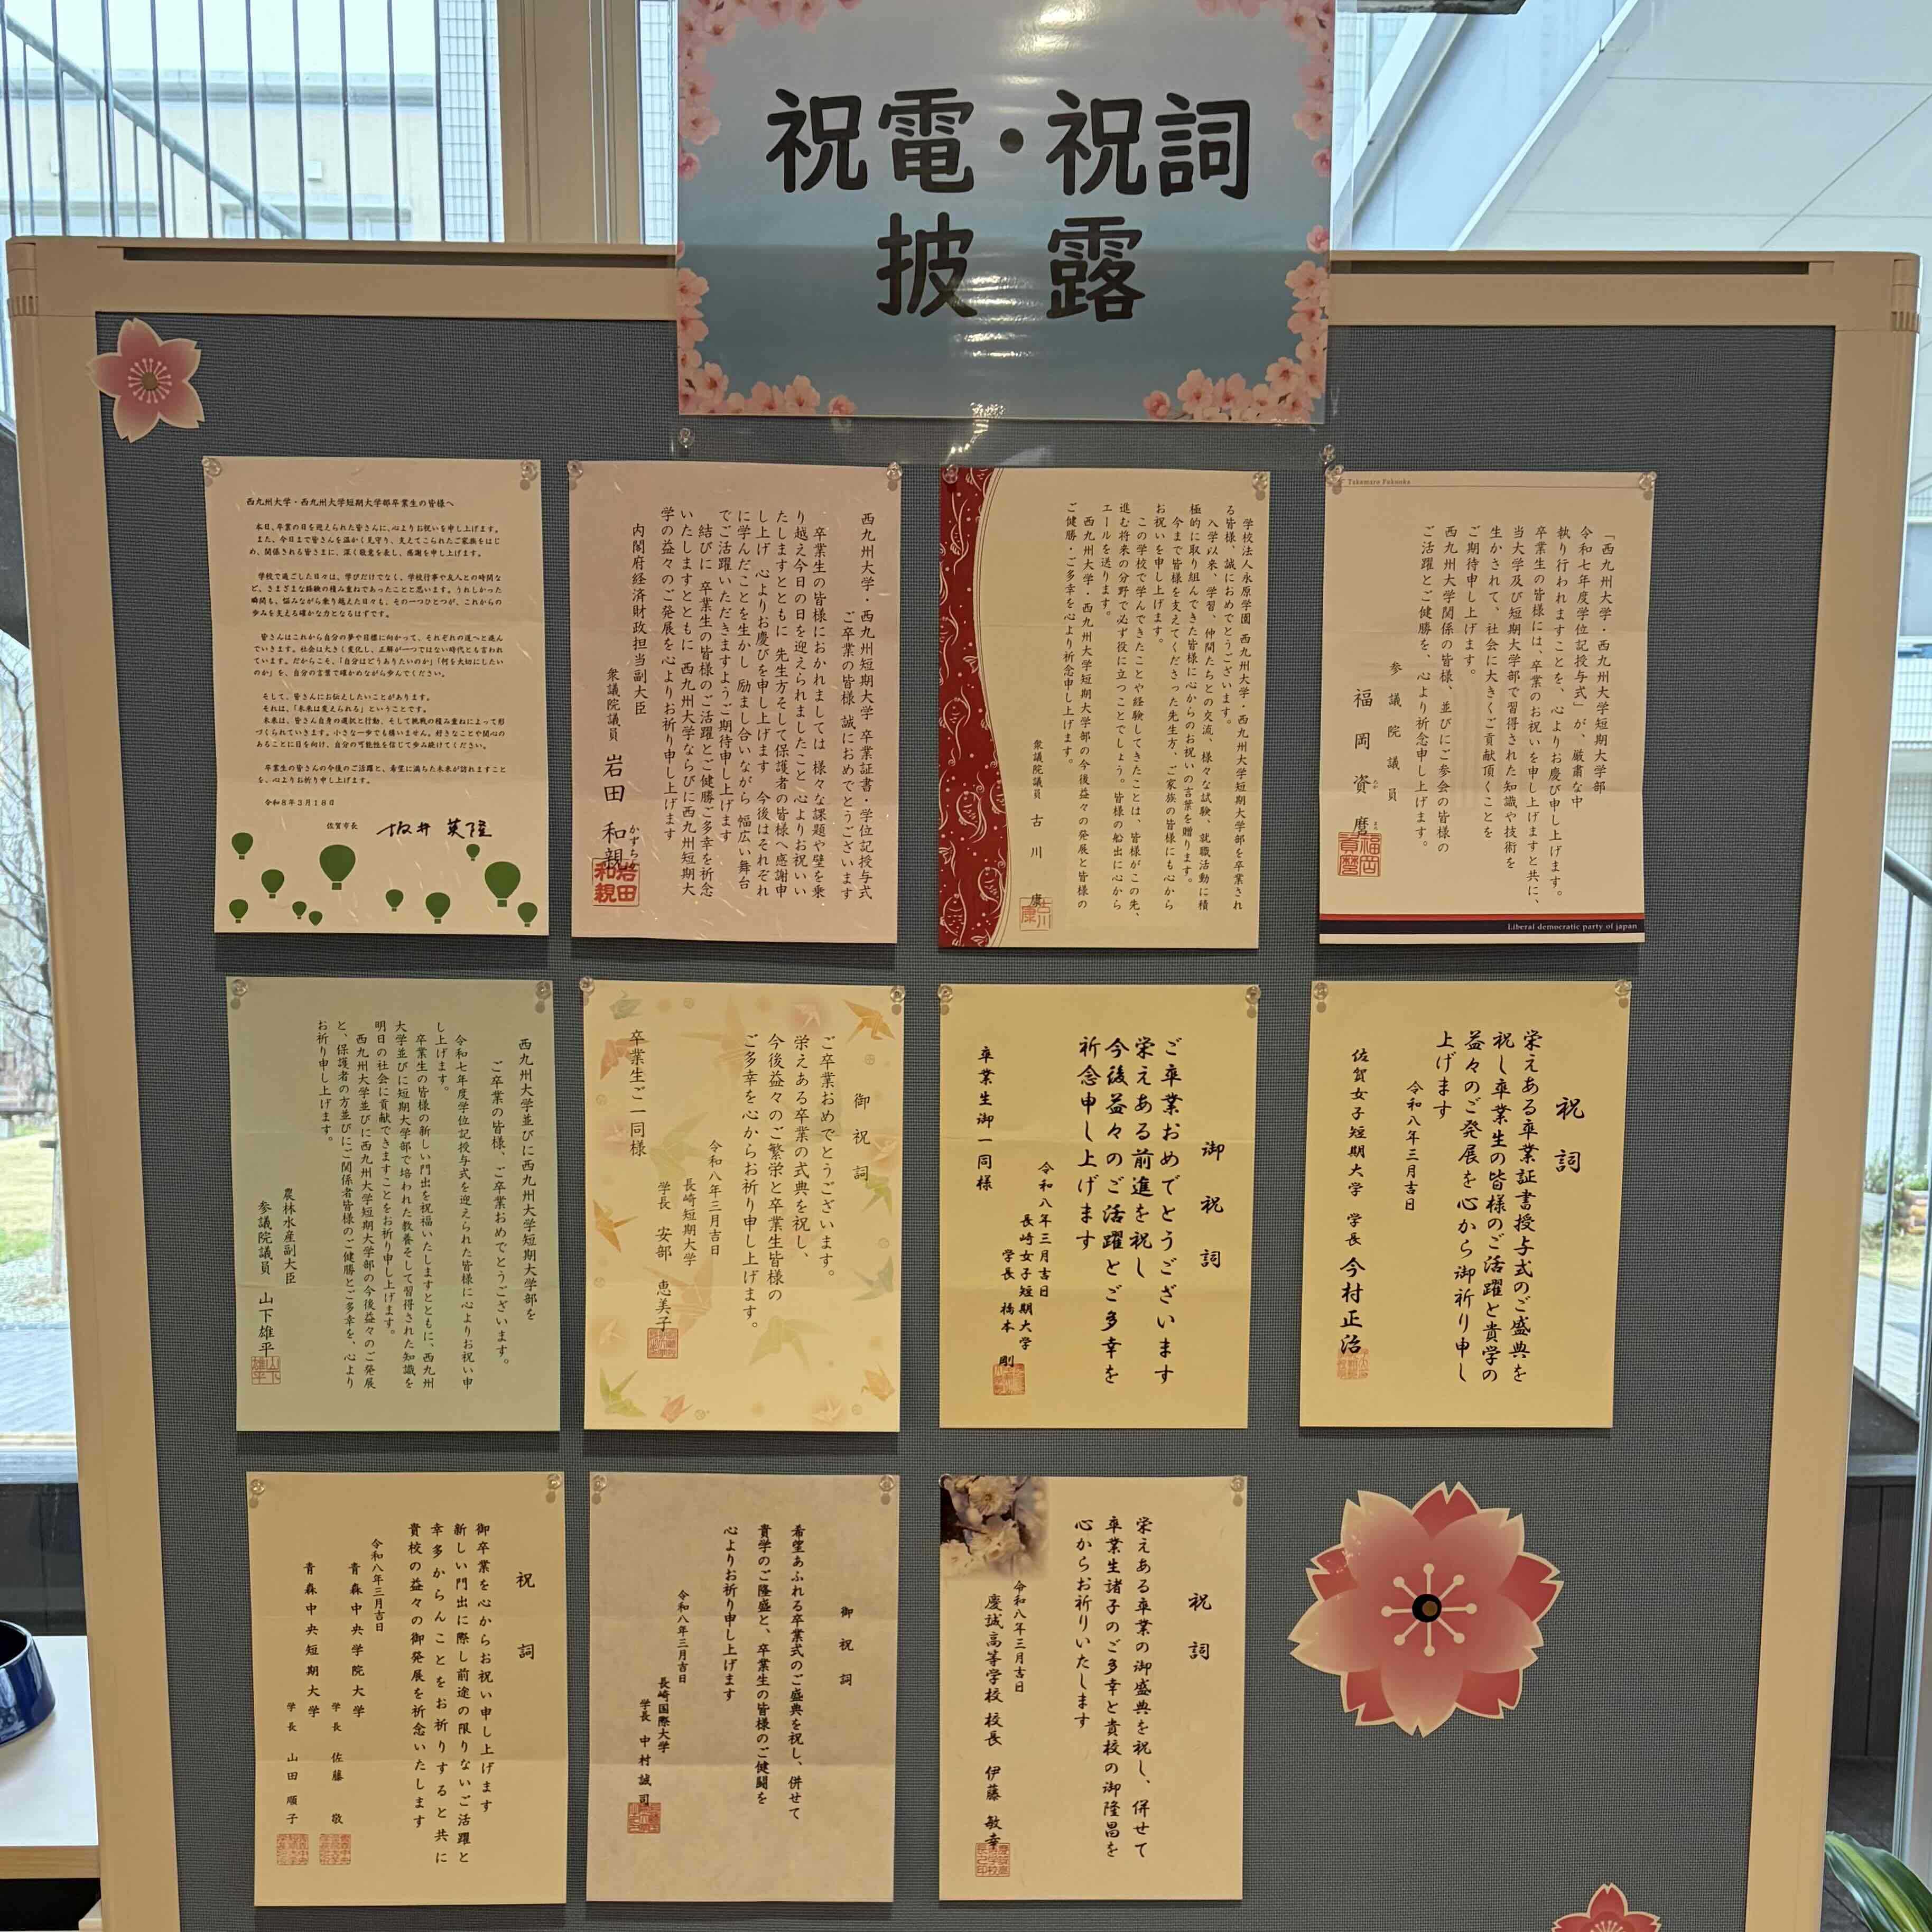 祝電・祝詞
披露
西九州大学・西九州大学短期大学部卒業生の皆様へ
本日、卒業の日を迎えられた皆さんに、心よりお祝いを申し上げます。
また、今日まで皆さんを温かく見守り、支えてこられたご家族をはじ
め、関係される皆さまに、深く敬意を表し、感謝を申し上げます。
学校で過ごした日々は、学びだけでなく、学校行事や友人との時間な
ど、さまざまな経験の積み重ねであったことと思います。うれしかった
瞬間も、悩みながら乗り越えた日々も、その一つひとつが、これからの
歩みを支える確かな力となるはずです。
皆さんはこれから自分の夢や目標に向かって、それぞれの道へと進ん
でいきます。社会は大きく変化し、正解が一つではない時代とも言われ
ています。だからこそ、「自分はどうありたいのか」「何を大切にしたい
のか」を、自分の言葉で確かめながら歩んでください。
そして、皆さんにお伝えしたいことがあります。
それは、「未来は変えられる」ということです。
未来は、皆さん自身の選択と行動、そして挑戦の積み重ねによって形
づくられていきます。小さな一歩でも構いません。好きなことや関心の
あることに目を向け、自分の可能性を信じて歩み続けてください。
卒業生の皆さんの今後のご活躍と、希望に満ちた未来が訪れますこと
を、心よりお祈り申し上げます。
令和8年3月18日
佐賀市長 坂井英隆
西九州大学・西九州短期大学 卒業証書・学位記授与式
ご卒業の皆様 誠におめでとうございます
卒業生の皆様におかれましては 様々な課題や壁を乗
り越え今日の日を迎えられましたこと 心よりお祝いい
たしますとともに 先生方そして保護者の皆様へ感謝申
し上げ 心よりお慶びを申し上げます 今後はそれぞれ
に学んだことを生かし 励まし合いながら 幅広い舞台
でご活躍いただきますようご期待申し上げます
結びに 卒業生の皆様のご活躍とご健勝ご多幸を祈念
いたしますとともに 西九州大学ならびに西九州短期大
学の益々のご発展を心よりお祈り申し上げます
内閣府経済財政担当副大臣
衆議院議員 岩田 和親
かずちか
岩田和親
学校法人永原学園 西九州大学・西九州大学短期大学部を卒業され
る皆様、誠におめでとうございます。
入学以来、学習、仲間たちとの交流、様々な試験、就職活動に積
極的に取り組んできた皆様に心からのお祝いの言葉を贈ります。
今まで皆様を支えてくださった先生方、ご家族の皆様にも心から
お祝いを申し上げます。
この学校で学んできたことや経験してきたことは、皆様がこの先、
進む将来の分野で必ず役に立つことでしょう。皆様の船出に心から
エールを送ります。
西九州大学・西九州大学短期大学部の今後益々の発展と皆様の
ご健勝・ご多幸を心より祈念申し上げます。
衆議院議員 古川 康
古川康
Takamaro Fukuoka
「西九州大学・西九州大学短期大学部
令和七年度学位記授与式」が、厳粛な中
執り行われますことを、心よりお慶び申し上げます。
卒業生の皆様には、卒業のお祝いを申し上げますと共に、
当大学及び短期大学部で習得された知識や技術を
生かされて、社会に大きくご貢献頂くことを
ご期待申し上げます。
西九州大学関係の皆様、並びにご参会の皆様の
ご活躍とご健勝を、心より祈念申し上げます。
参議院議員
福岡資麿
たか まろ
福岡資麿
Liberal democratic party of japan
西九州大学並びに西九州大学短期大学部を
ご卒業の皆様、ご卒業おめでとうございます。
令和七年度学位記授与式を迎えられた皆様に心よりお祝い申
し上げます。
卒業生の皆様の新しい門出を祝福いたしますとともに、西九州
大学並びに短期大学部で培われた教養そして習得された知識を
明日の社会に貢献できますことをお祈り申し上げます。
西九州大学並びに西九州大学短期大学部の今後益々のご発展
と、保護者の方並びにご関係者皆様のご健勝とご多幸を、心より
お祈り申し上げます。
農林水産副大臣
参議院議員 山下雄平
山下雄平
御祝詞
ご卒業おめでとうございます。
栄えある卒業の式典を祝し、
今後益々のご繁栄と卒業生皆様の
ご多幸を心からお祈り申し上げます。
令和八年三月吉日
長崎短期大学
学長 安部 恵美子
卒業生ご一同様
御祝詞
ご卒業おめでとうございます
栄えある前進を祝し
今後益々のご活躍とご多幸を
祈念申し上げます
令和八年三月吉日
長崎女子短期大学
学長 橋本 剛
卒業生御一同様
祝詞
栄えある卒業証書授与式のご盛典を
祝し卒業生の皆様のご活躍と貴学の
益々のご発展を心から御祈り申し
上げます
令和八年三月吉日
佐賀女子短期大学 学長 今村正治
祝詞
御卒業を心からお祝い申し上げます
新しい門出に際し前途の限りないご活躍と
幸多からんことをお祈りすると共に
貴校の益々の御発展を祈念いたします
令和八年三月吉日
青森中央学院大学
学長 佐藤 敬
青森中央短期大学
学長 山田 順子
御祝詞
希望あふれる卒業式のご盛典を祝し、併せて
貴学のご隆盛と、卒業生の皆様のご健闘を
心よりお祈り申し上げます
令和八年三月吉日
長崎国際大学
学長 中村誠司
祝詞
栄えある卒業の御盛典を祝し、併せて
卒業生諸子のご多幸と貴校の御隆昌を
心からお祈りいたします
令和八年三月吉日
慶誠高等学校 校長 伊藤 敏幸